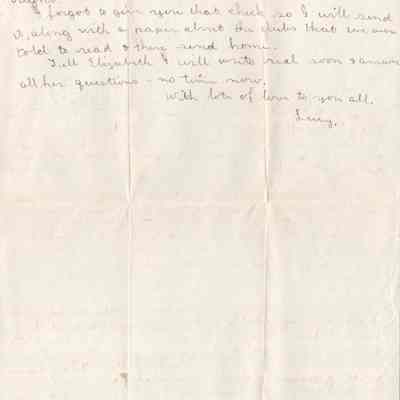 I forgot to give you that check so I will send
it, along with a paper about the clubs that we were
told to read & then send home.
Tell Elizabeth I will write real soon & answer
all her questions - no time now.
With lots of love to you all.
Lucy.